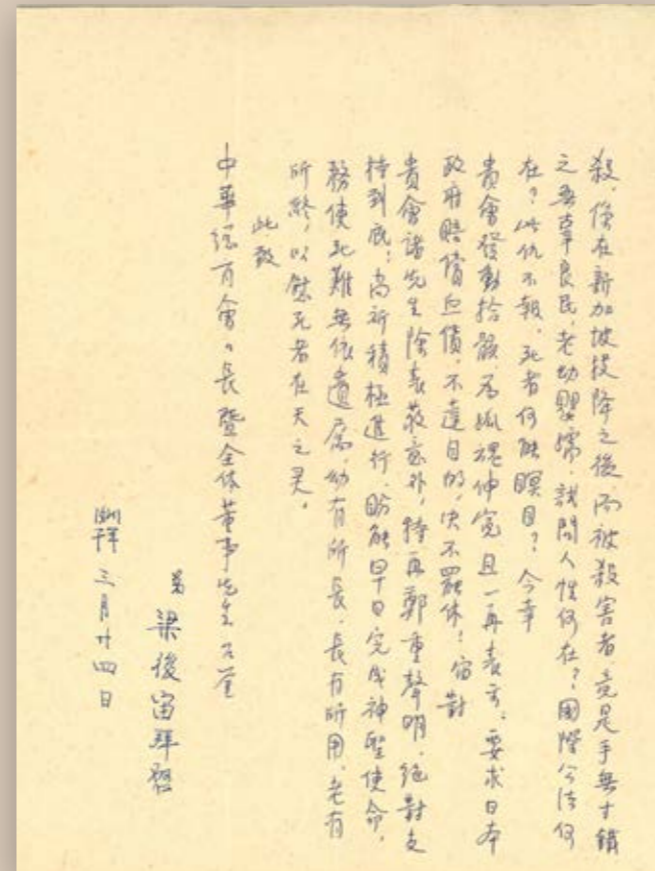 殺，係在新加坡投降之後而被殺害者，竟是手無寸鐵
之無辜良民，老幼嬰孺，試問人性何在？國際公法何
在？此仇不報，死者何能瞑目？今幸
貴會發動拾骸，為孤魂伸冤且一再表示，要求日本
政府賠償血債，不達目的，決不罷休！宙對
貴會諸先生除表敬意外，特再鄭重聲明，絕對支
持到底；尚祈積極進行，盼能早日完成神聖使命，
務使死難無依遺屬，幼有所長，長有所用，老有
所終，以慰死者在天之灵。
此致
中華總商會會長暨全体董事先生 台鑒
弟 梁後宙拜啓
三月廿四日